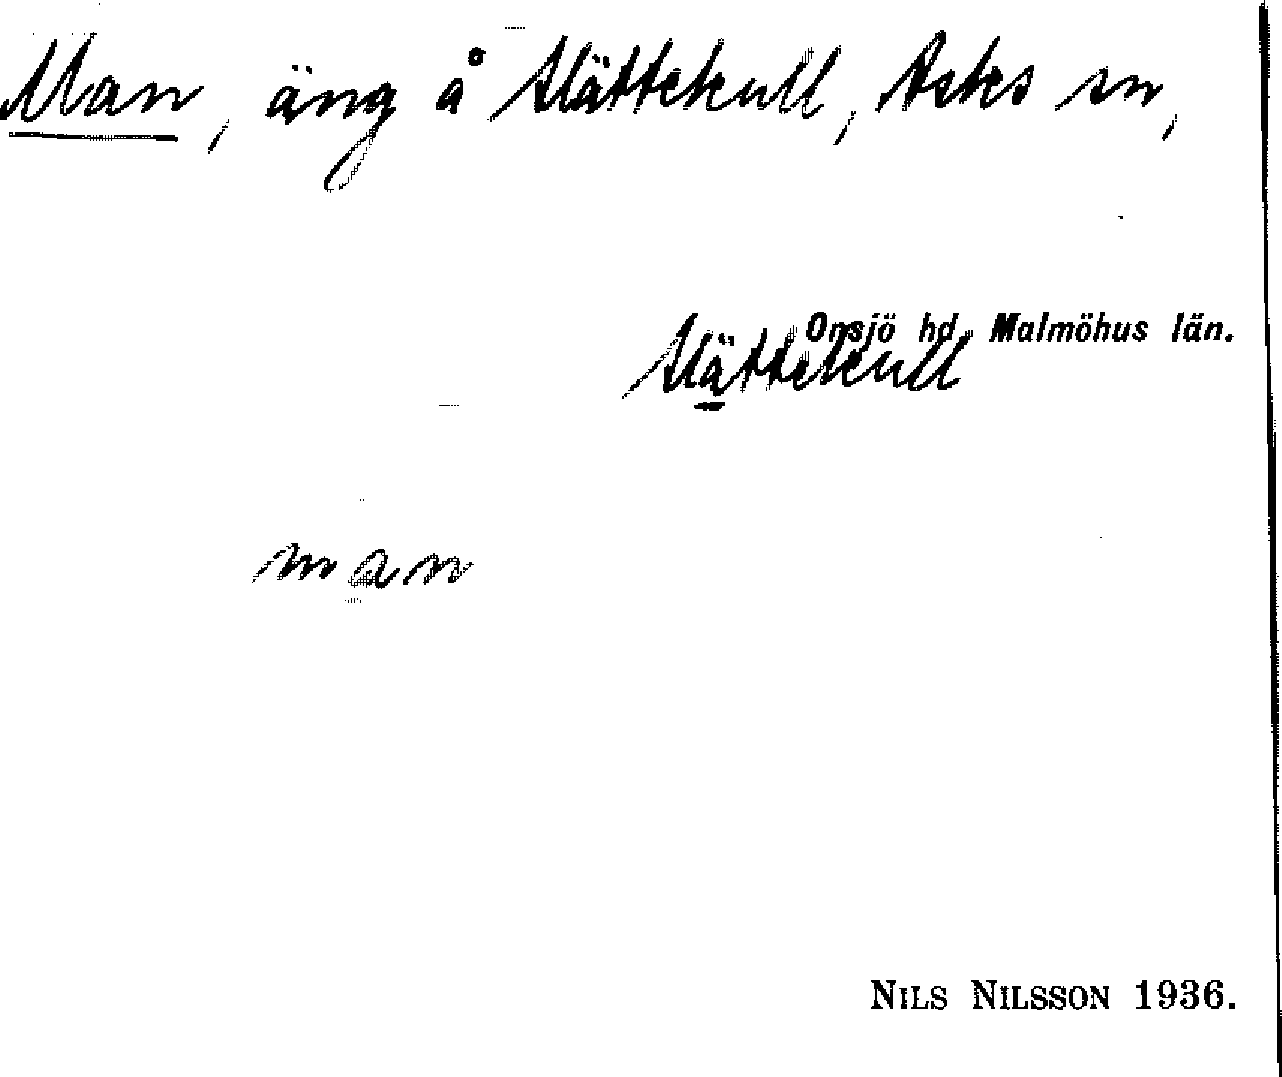 Man, äng å Slättekull, Asks sn,
Onsjö hd, Malmöhus län.
Slättekull
man
NILS NILSSON 1936.